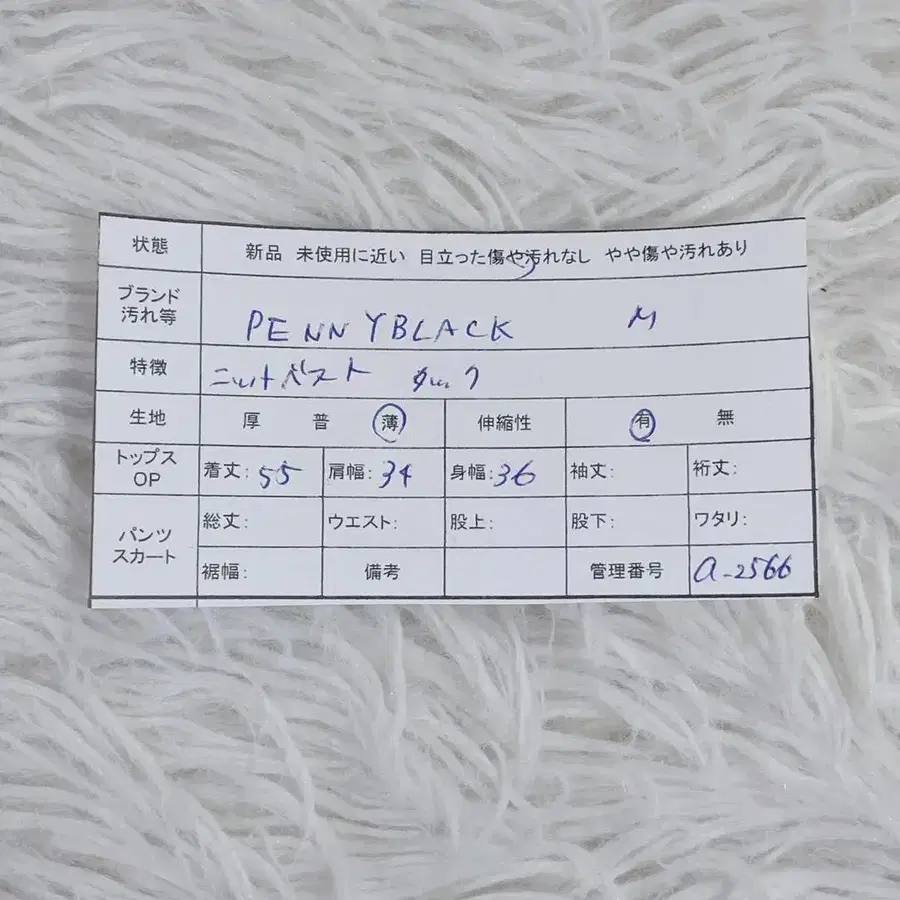 状態 新品 未使用に近い 目立った傷や汚れなし やや傷や汚れあり
ブランド
汚れ等
PENNYBLACK M
特徴 ニットベスト タック
生地 厚 普 薄 伸縮性 有 無
トップス
OP
着丈: 55 肩幅: 34 身幅: 36 袖丈: 裄丈:
パンツ
スカート
総丈: ウエスト: 股上: 股下: ワタリ:
裾幅: 備考 管理番号 a-2566